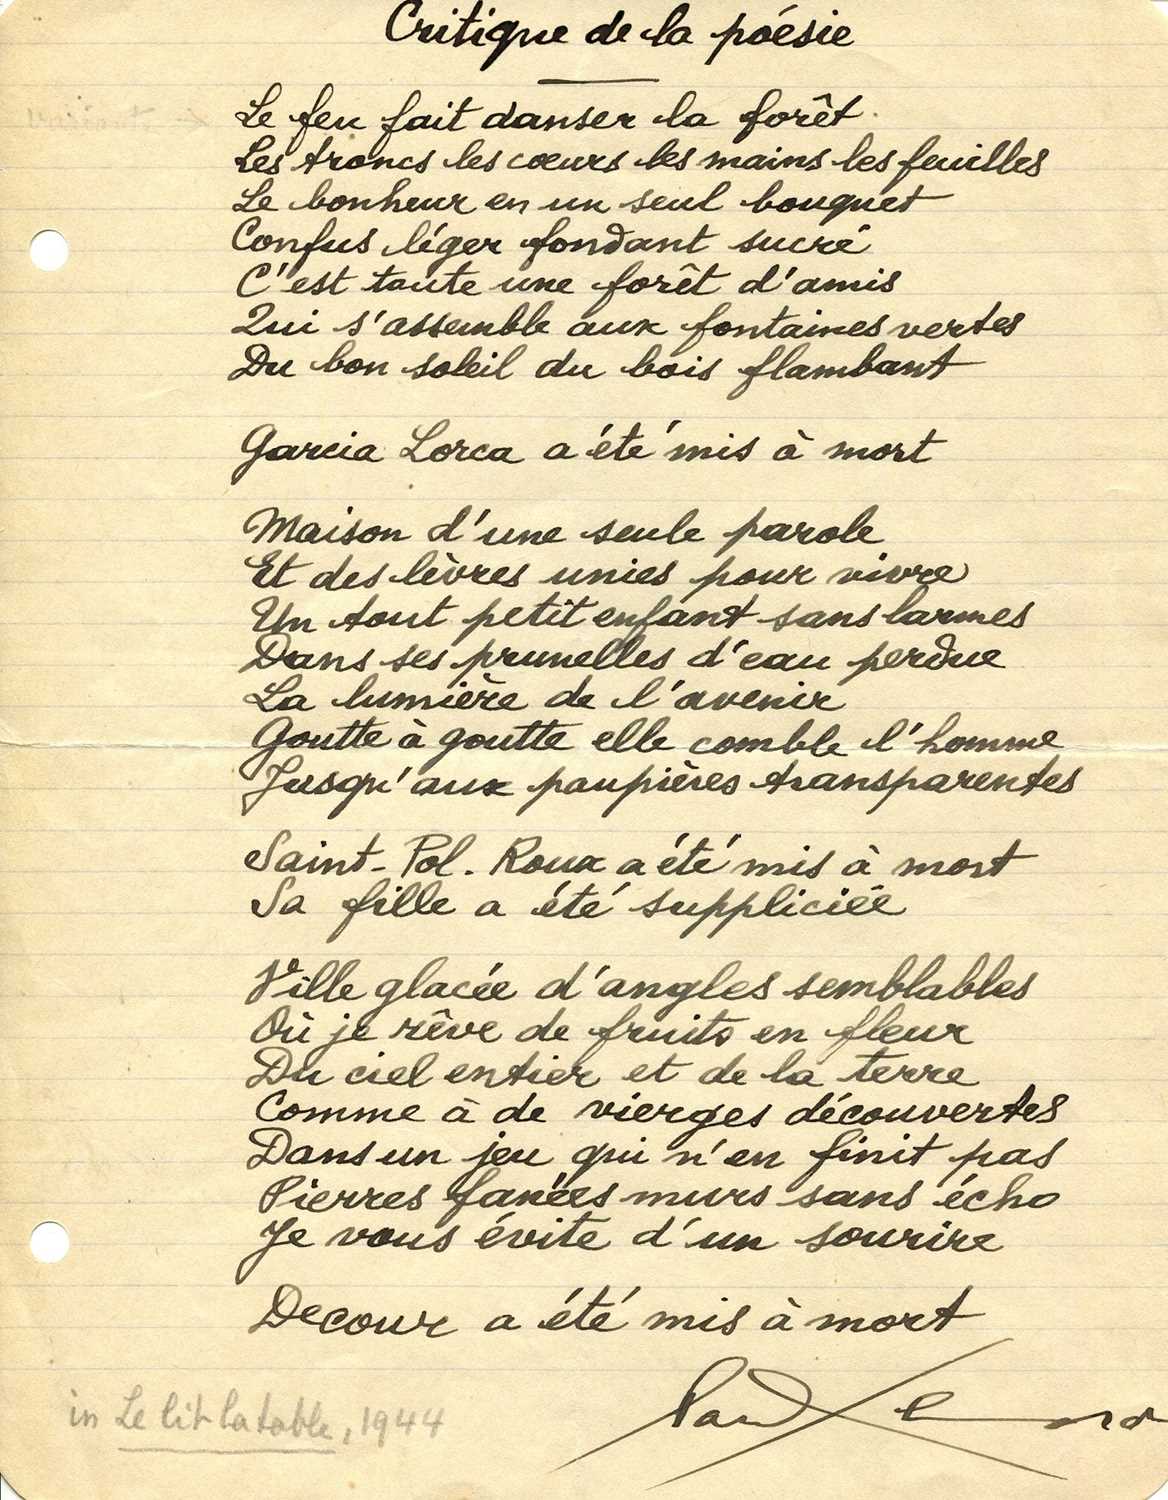 Critique de la poésie
Le feu fait danser la forêt
Les troncs les cœurs les mains les feuilles
Le bonheur en un seul bouquet
Confus léger fondant sucré
C'est toute une forêt d'amis
Qui s'assemble aux fontaines vertes
Du bon soleil du bois flambant
Garcia Lorca a été mis à mort
Maison d'une seule parole
Et des lèvres unies pour vivre
Un tout petit enfant sans larmes
Dans ses prunelles d'eau perdue
La lumière de l'avenir
Goutte à goutte elle comble l'homme
Jusqu'aux paupières transparentes
Saint-Pol-Roux a été mis à mort
Sa fille a été suppliciée
Ville glacée d'angles semblables
Où je rêve de fruits en fleur
Du ciel entier et de la terre
Comme à de vierges découvertes
Dans un jeu qui n'en finit pas
Pierres fanées murs sans écho
Je vous évite d'un sourire
Decour a été mis à mort
in Le lit la table, 1944